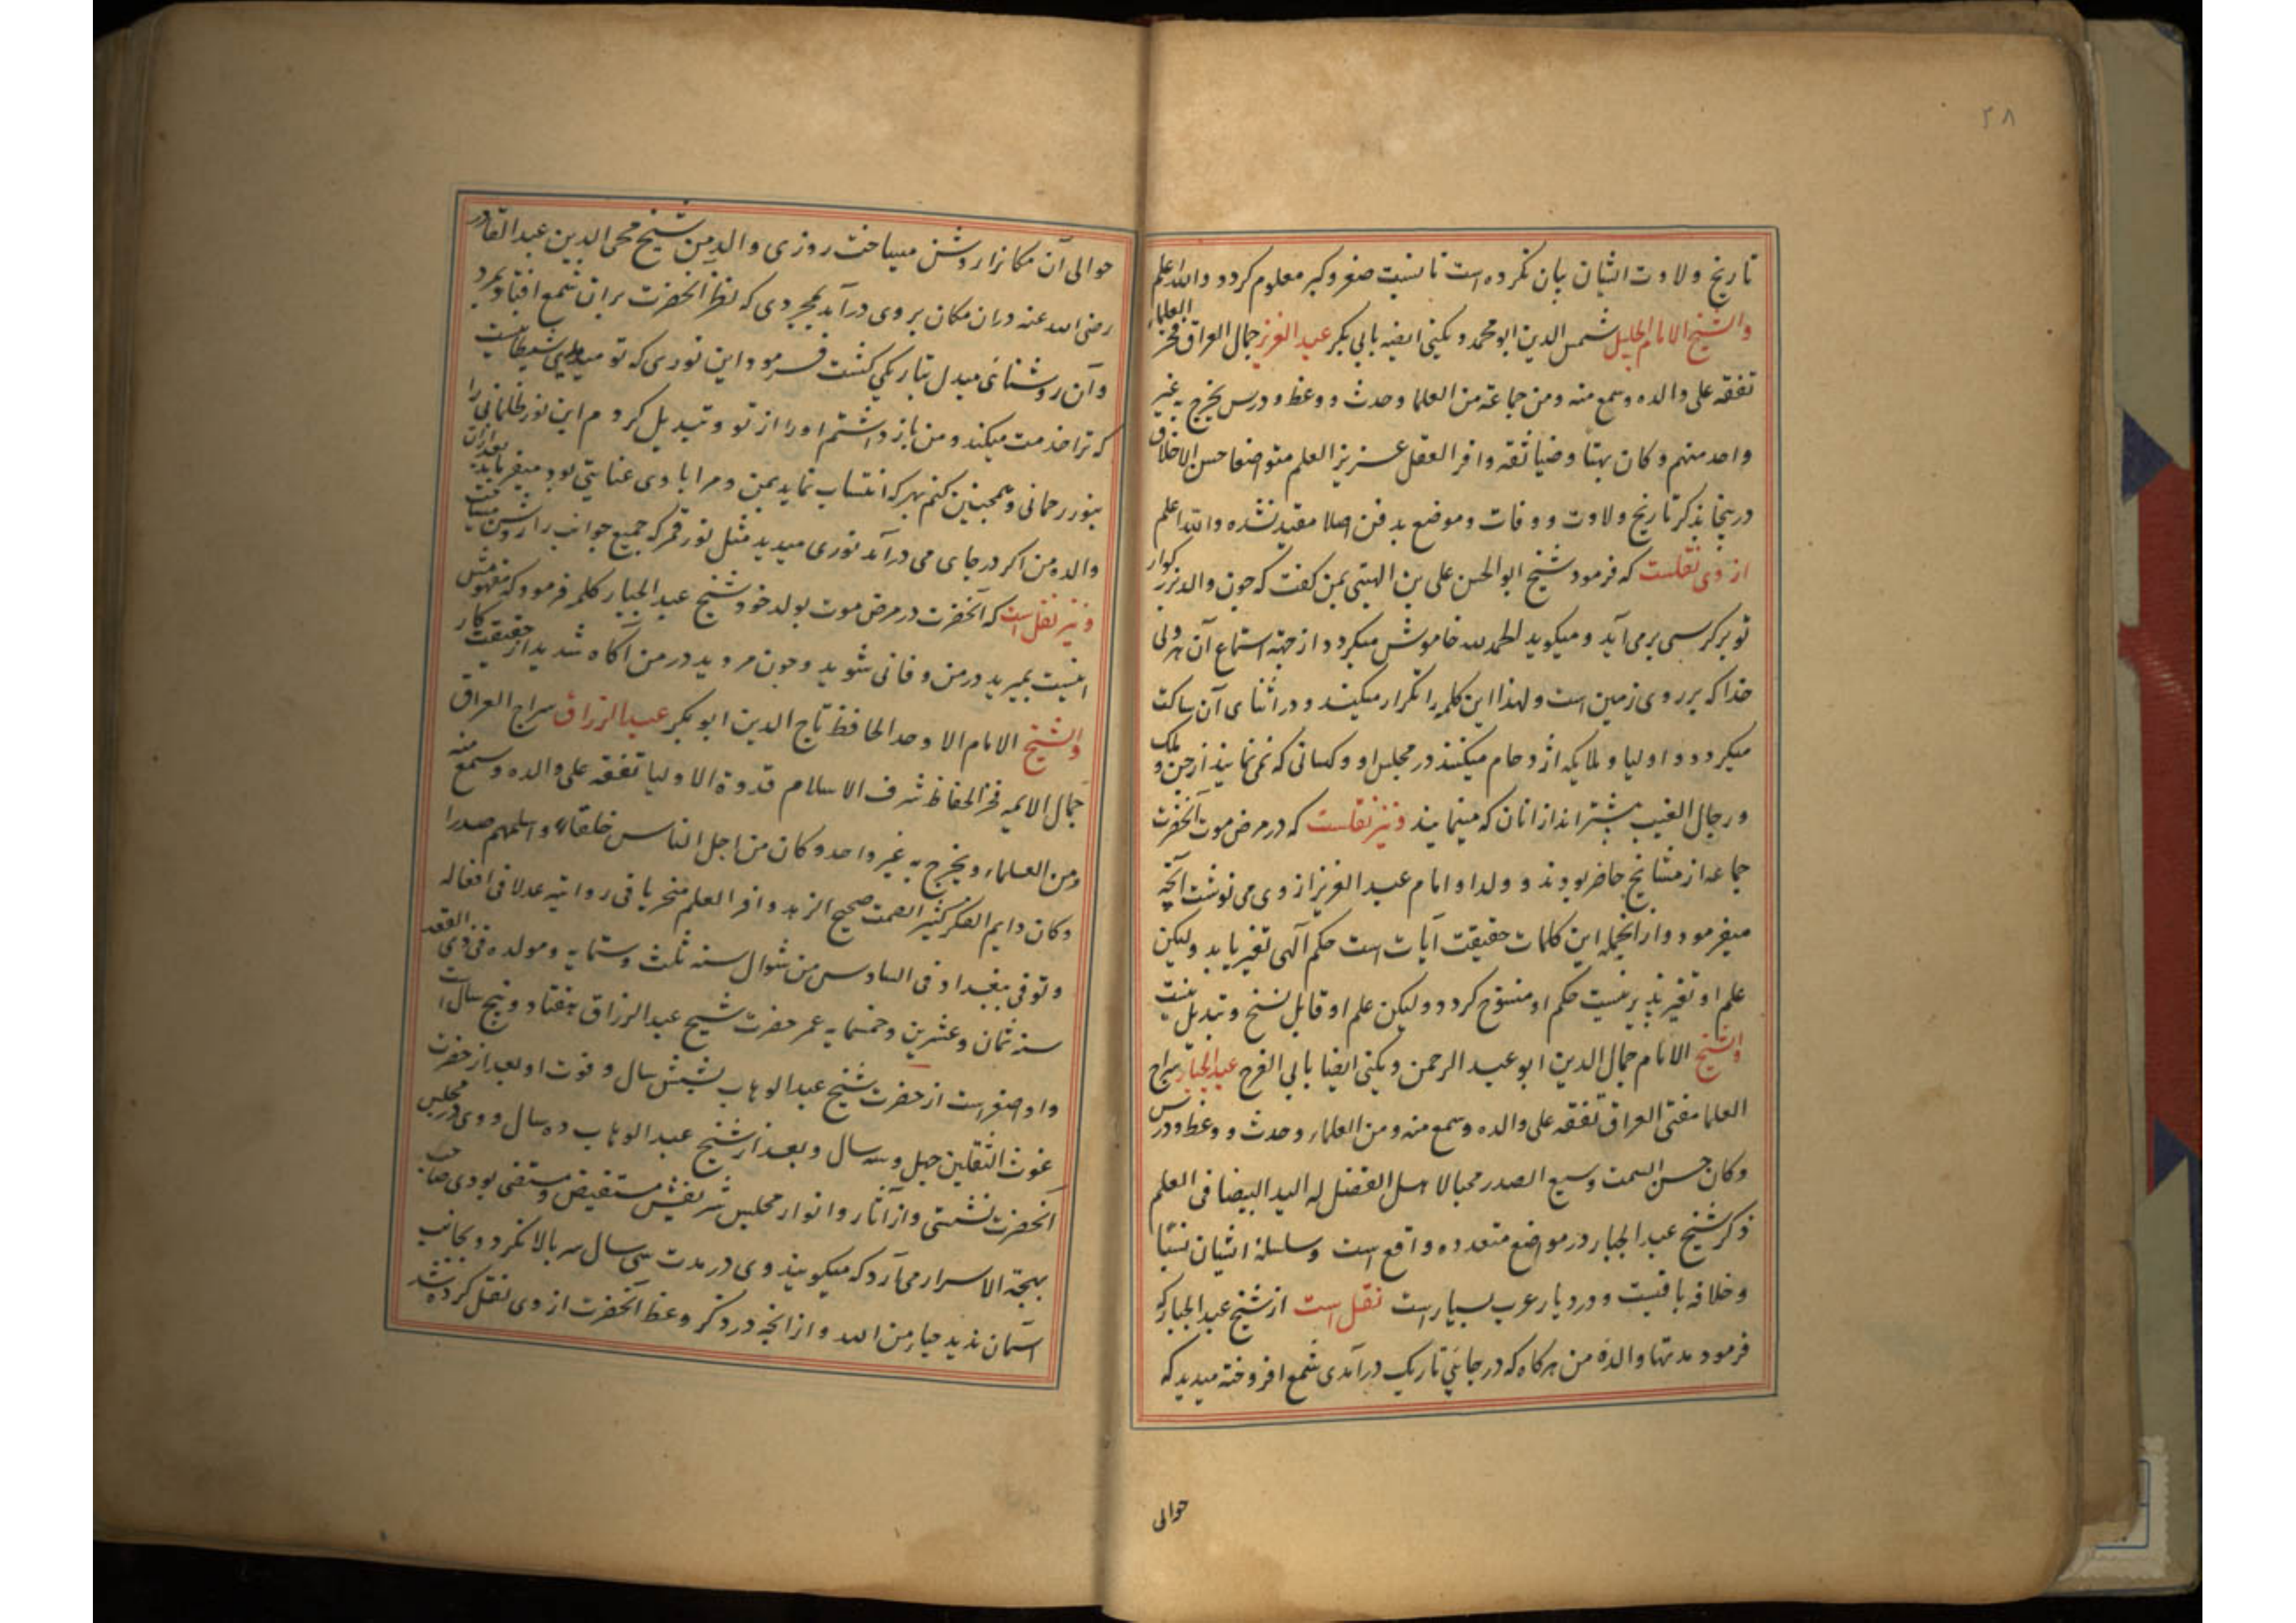 ۳۸
تاریخ ولادت ایشان بیان نکرده است تا نسبت صغر و کبر معلوم کردد والله اعلم
والشیخ الامام الجلیل شمس الدین ابو محمد و یکنی ایضا بابی بکر عبد العزیز جمال العراق فخر العلماء
تفقه علی والده و سمع منه ومن جماعة من العلما وحدث و وعظ و درس یخرج به غیر
واحد منهم و کان بهتا وضیا ثقه وافر العقل عزیز العلم متواضعا حسن الاخلاق
درینجا بذکر تاریخ ولادت و وفات و موضع بدفن اصلا مقید نشده والله اعلم
از وی نقلست که فرمود شیخ ابو الحسن علی بن الهیتی بمن کفت که چون والد بزرکوار
تو بر کرسی برمی آید و میکوید الحمد لله خاموش میکردد از جهة استماع آن هر ولی
خدا که بر روی زمین است و لهذا این کلمه را تکرار میکند و در اثنای آن ساکت
میکردد و اولیا و ملایکه ازدحام میکنند در مجلس او و کسانی که نمی نمایند از جن و ملک
و رجال الغیب بیشتر اند از انان که مینمایند و نیز نقلست که در مرض موت آنحضرت
جماعه از مشایخ حاضر بودند و ولد او امام عبد العزیز از وی می نوشت آنچه
میفرمود و از انجمله این کلمات حقیقت آیات است حکم آلهی تغیر یابد ولیکن
علم او تغیر پذیر نیست حکم او منسوخ کردد و لیکن علم او قابل نسخ و تبدیل نیست
والشیخ الامام جمال الدین ابو عبد الرحمن و یکنی ایضا بابی الفرج عبد الجبار سراج
العلما مفتی العراق تفقه علی والده و سمع منه ومن العلماء وحدث و وعظ و درس
وکان حسن السمت وسیع الصدر محبا لاهل الفضل له الید البیضا فی العلم
ذکر شیخ عبد الجبار در مواضع متعدده واقع است و سلسلهٔ ایشان نسبًا
و خلافه باقیست و در دیار عرب بسیار است نقل است از شیخ عبد الجبار که
فرمود مدتها والدهٔ من هرکاه که در جائی تاریک درآمدی شمع افروخته میدید که
حوالی
حوالی آن مکانرا روشن میساخت روزی والد من شیخ محی الدین عبد القادر
رضی الله عنه دران مکان بر وی درآمد بمجردی که نظر آنحضرت بران شمع افتاد بمرد
و آن روشنائی مبدل بتاریکی کشت فرمود این نوری که تو میدیدی شیطانیست
که ترا خدمت میکند و من باز داشتم او را از تو و تبدیل کردم این نور ظلمانی را
بنور رحمانی و همچنین کنم بهر که انتساب نماید بمن و مرا با وی عنایتی بود میفرماید بعد ازان
والدهٔ من اکر در جای می درآمد نوری میدید مثل نور قمر که جمیع جوانب را روشن میساخت
و نیز نقل است که آنحضرت در مرض موت بولد خود شیخ عبد الجبار کلمه فرمود که مفهومش
اینست بمیرید در من و فانی شوید و چون مردید در من آکاه شدید از حقیقت کار
والشیخ الامام الاوحد الحافظ تاج الدین ابو بکر عبد الرزاق سراج العراق
جمال الایمه فخر الحفاظ شرف الاسلام قدوة الاولیا تفقه علی والده و سمع منه
ومن العلماء ویخرج به غیر واحد وکان من اجل الناس خلقا واسلمهم صدرا
وکان دایم الفکر کثیر الصمت صحیح الزهد وافر العلم متحریا فی روایته عدلا فی افعاله
و توفی ببغداد فی السادس من شوال سنه ثلث و ستمایه و مولده فی ذی القعد
سنه ثمان وعشرین و خمسمایه عمر حضرت شیخ عبد الرزاق هفتاد و پنج سال است
و او اصغر است از حضرت شیخ عبد الوهاب بشش سال و فوت او بعد از حضرت
غوث الثقلین چهل و سه سال و بعد از شیخ عبد الوهاب ده سال و وی در مجلس
آنحضرت نشستی و از آثار و انوار مجلس شریفش مستفیض و مستفی بودی صاحب
بهجة الاسرار می آرد که میکویند وی در مدت سی سال سر بالا نکرد و بجانب
آسمان ندید حیاء من الله و از آنچه در ذکر وعظ آنحضرت از وی نقل کرده شد